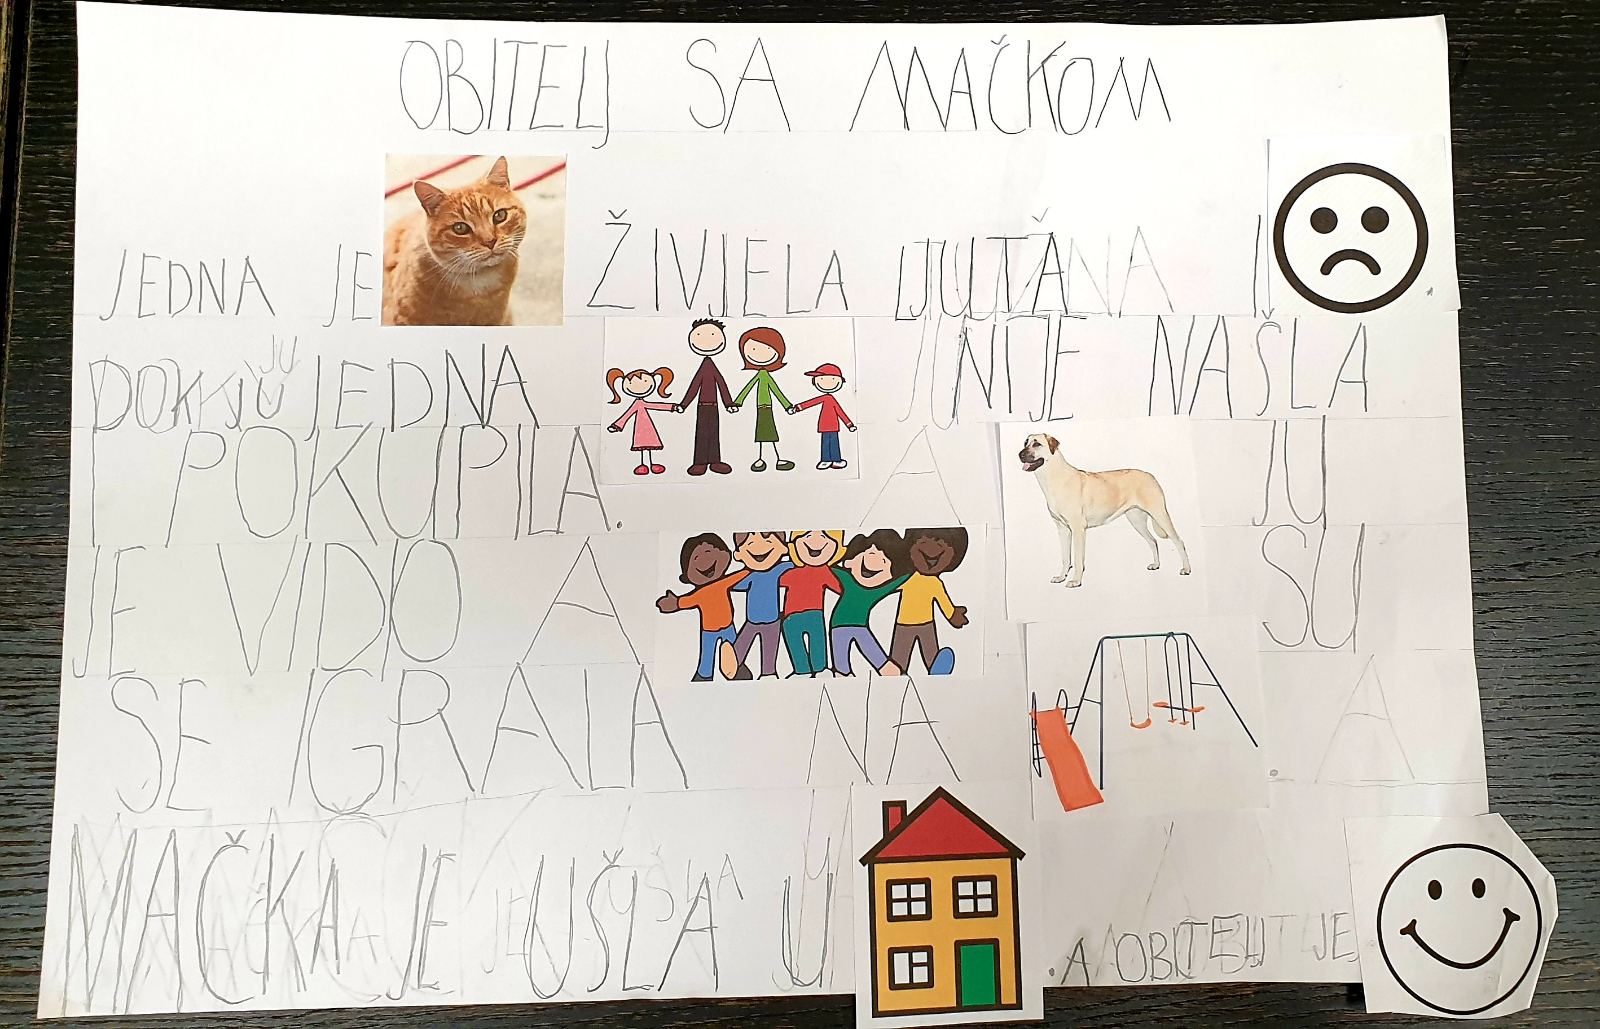 OBITELJ SA MAČKOM
JEDNA JE ŽIVJELA LJUTA I
DOK JU JEDNA NIJE NAŠLA
I POKUPILA. A JU
JE VIDIO A SU
SE IGRALA NA . A
MAČKA JE UŠLA U . A OBITELJ JE